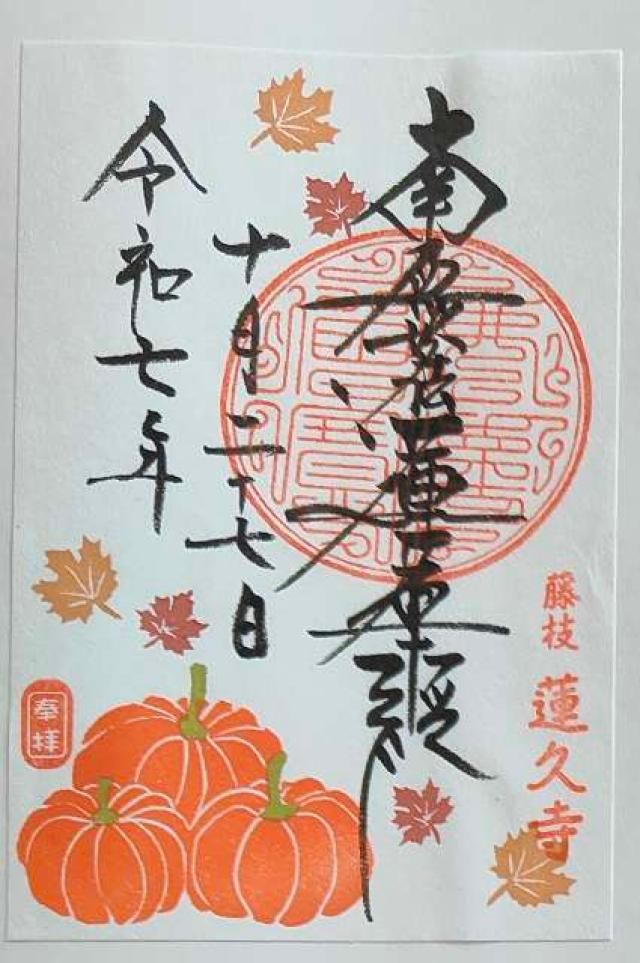 南無妙法蓮華経
十月二十七日
令和七年
藤枝
蓮久寺
奉拝